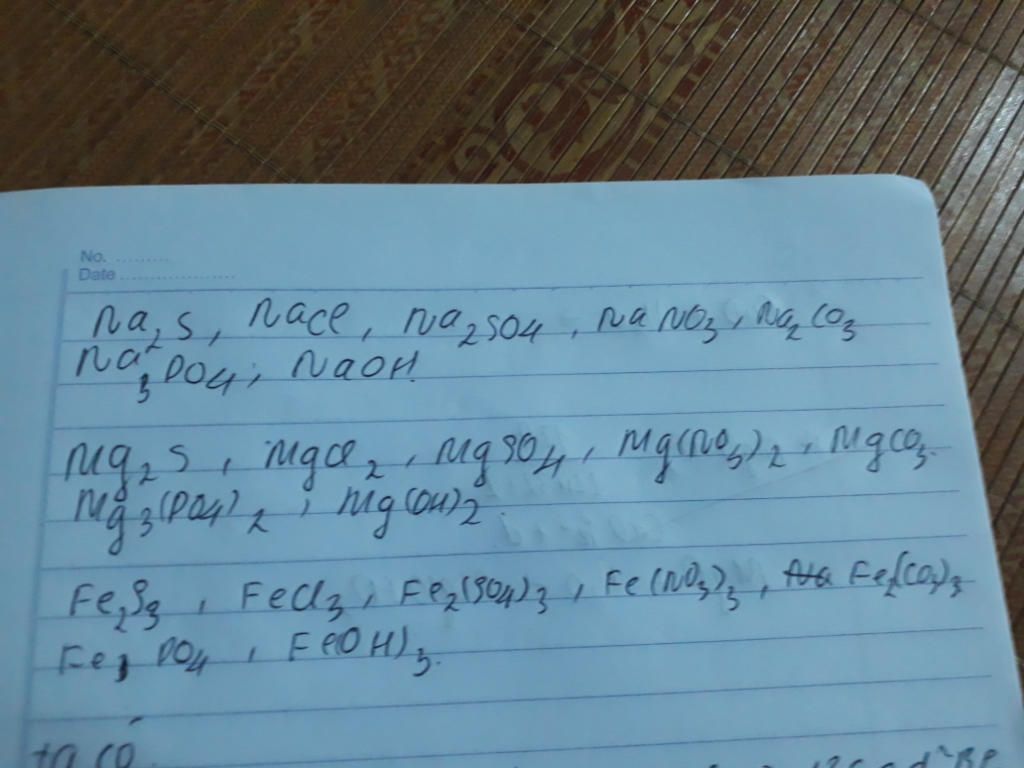 No. ..........
Date ....................
Na₂S, NaCl, Na₂SO₄, NaNO₃, Na₂CO₃
Na₃PO₄; NaOH.
Mg₂S, MgCl₂, MgSO₄, Mg(NO₃)₂, MgCO₃.
Mg₃(PO₄)₂, Mg(OH)₂.
Fe₂S₃, FeCl₃, Fe₂(SO₄)₃, Fe(NO₃)₃, Fe₂(CO₃)₃
Fe PO₄, Fe(OH)₃.
ta có